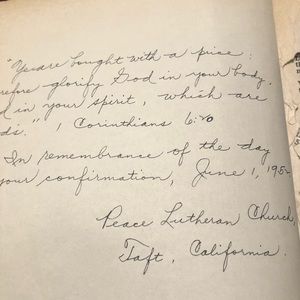 "You are bought with a price:
refore glorify God in your body,
d in your spirit, which are
ds." 1 Corinthians 6:20
In remembrance of the day
your confirmation, June 1, 195
Peace Lutheran Church,
Taft, California.